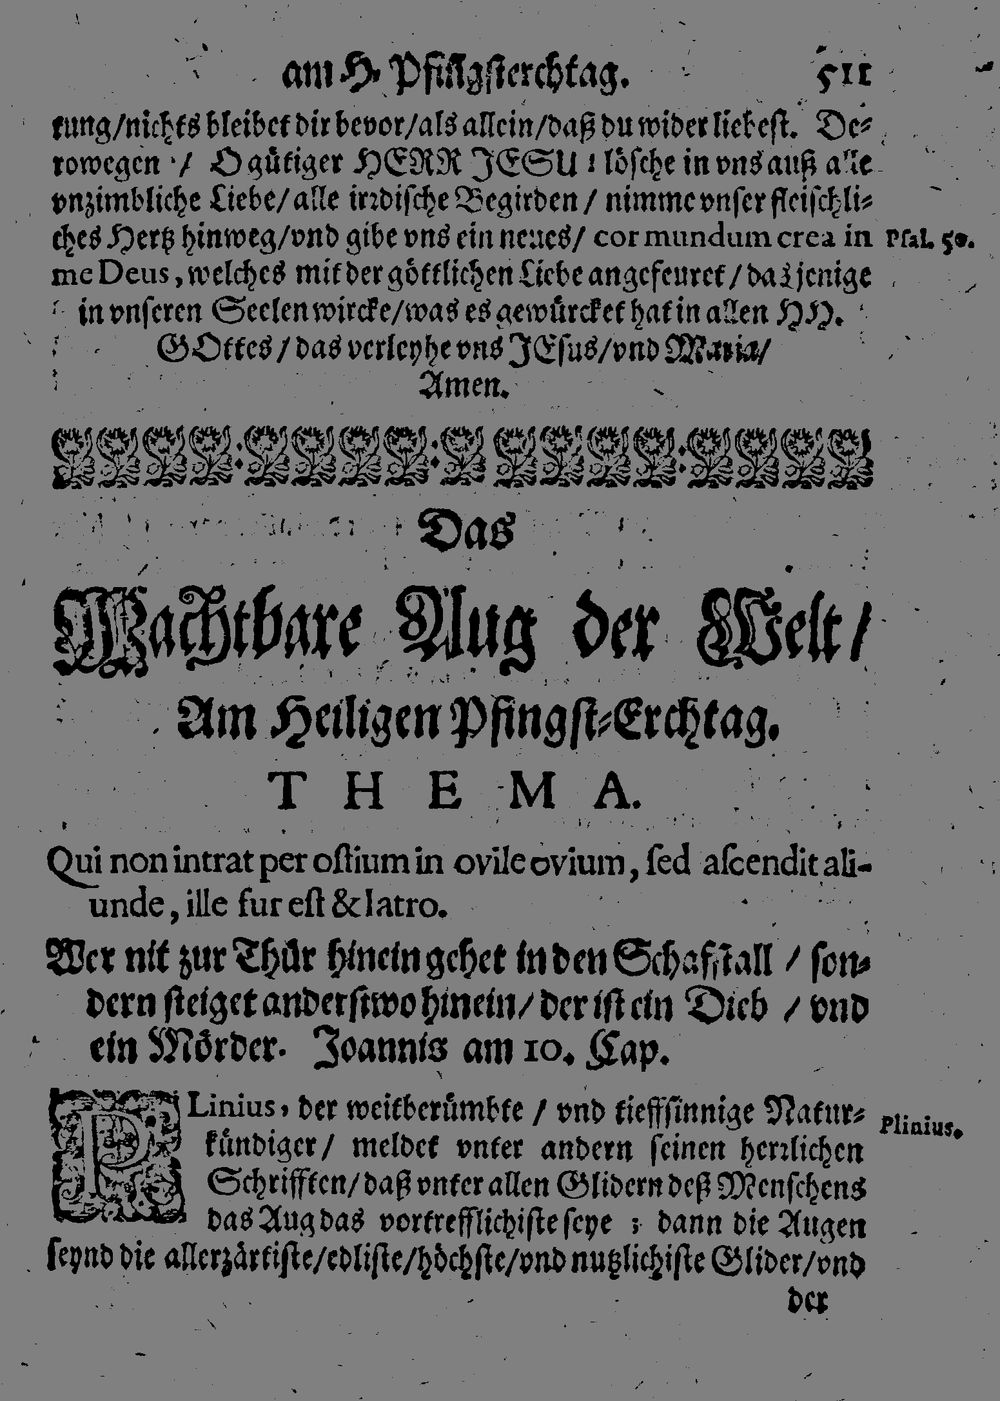 am H. Pfingsterchtag. 511
tung/nichts bleibet dir bevor/als allein/daß du wider liebest. De-
rowegen / O gütiger HERR JESU! lösche in vns auß alle
vnzimbliche Liebe/ alle irrdische Begirden / nimme vnser fleischli-
ches Hertz hinweg/vnd gibe vns ein neues/ cor mundum crea in Psal. 50.
me Deus, welches mit der göttlichen Liebe angefeuret / das jenige
in vnseren Seelen wircke/was es gewürcket hat in allen HH.
GOttes / das verleyhe vns JEsus/vnd Maria/
Amen.
Das
Wachtbare Aug der Welt/
Am Heiligen Pfingst-Erchtag.
THEMA.
Qui non intrat per ostium in ovile ovium, sed ascendit ali-
unde, ille fur est & latro.
Wer nit zur Thür hinein gehet in den Schafstall / son-
dern steiget anderstwo hinein/ der ist ein Dieb / vnd
ein Mörder. Joannis am 10. Cap.
PLinius, der weitberümbte / vnd tieffsinnige Natur- Plinius.
kündiger/ meldet vnter andern seinen herrlichen
Schrifften/daß vnter allen Glidern deß Menschens
das Aug das vortrefflichiste seye ; dann die Augen
seynd die allerzärtiste/edliste/höchste/vnd nutzlichiste Glider/vnd
der